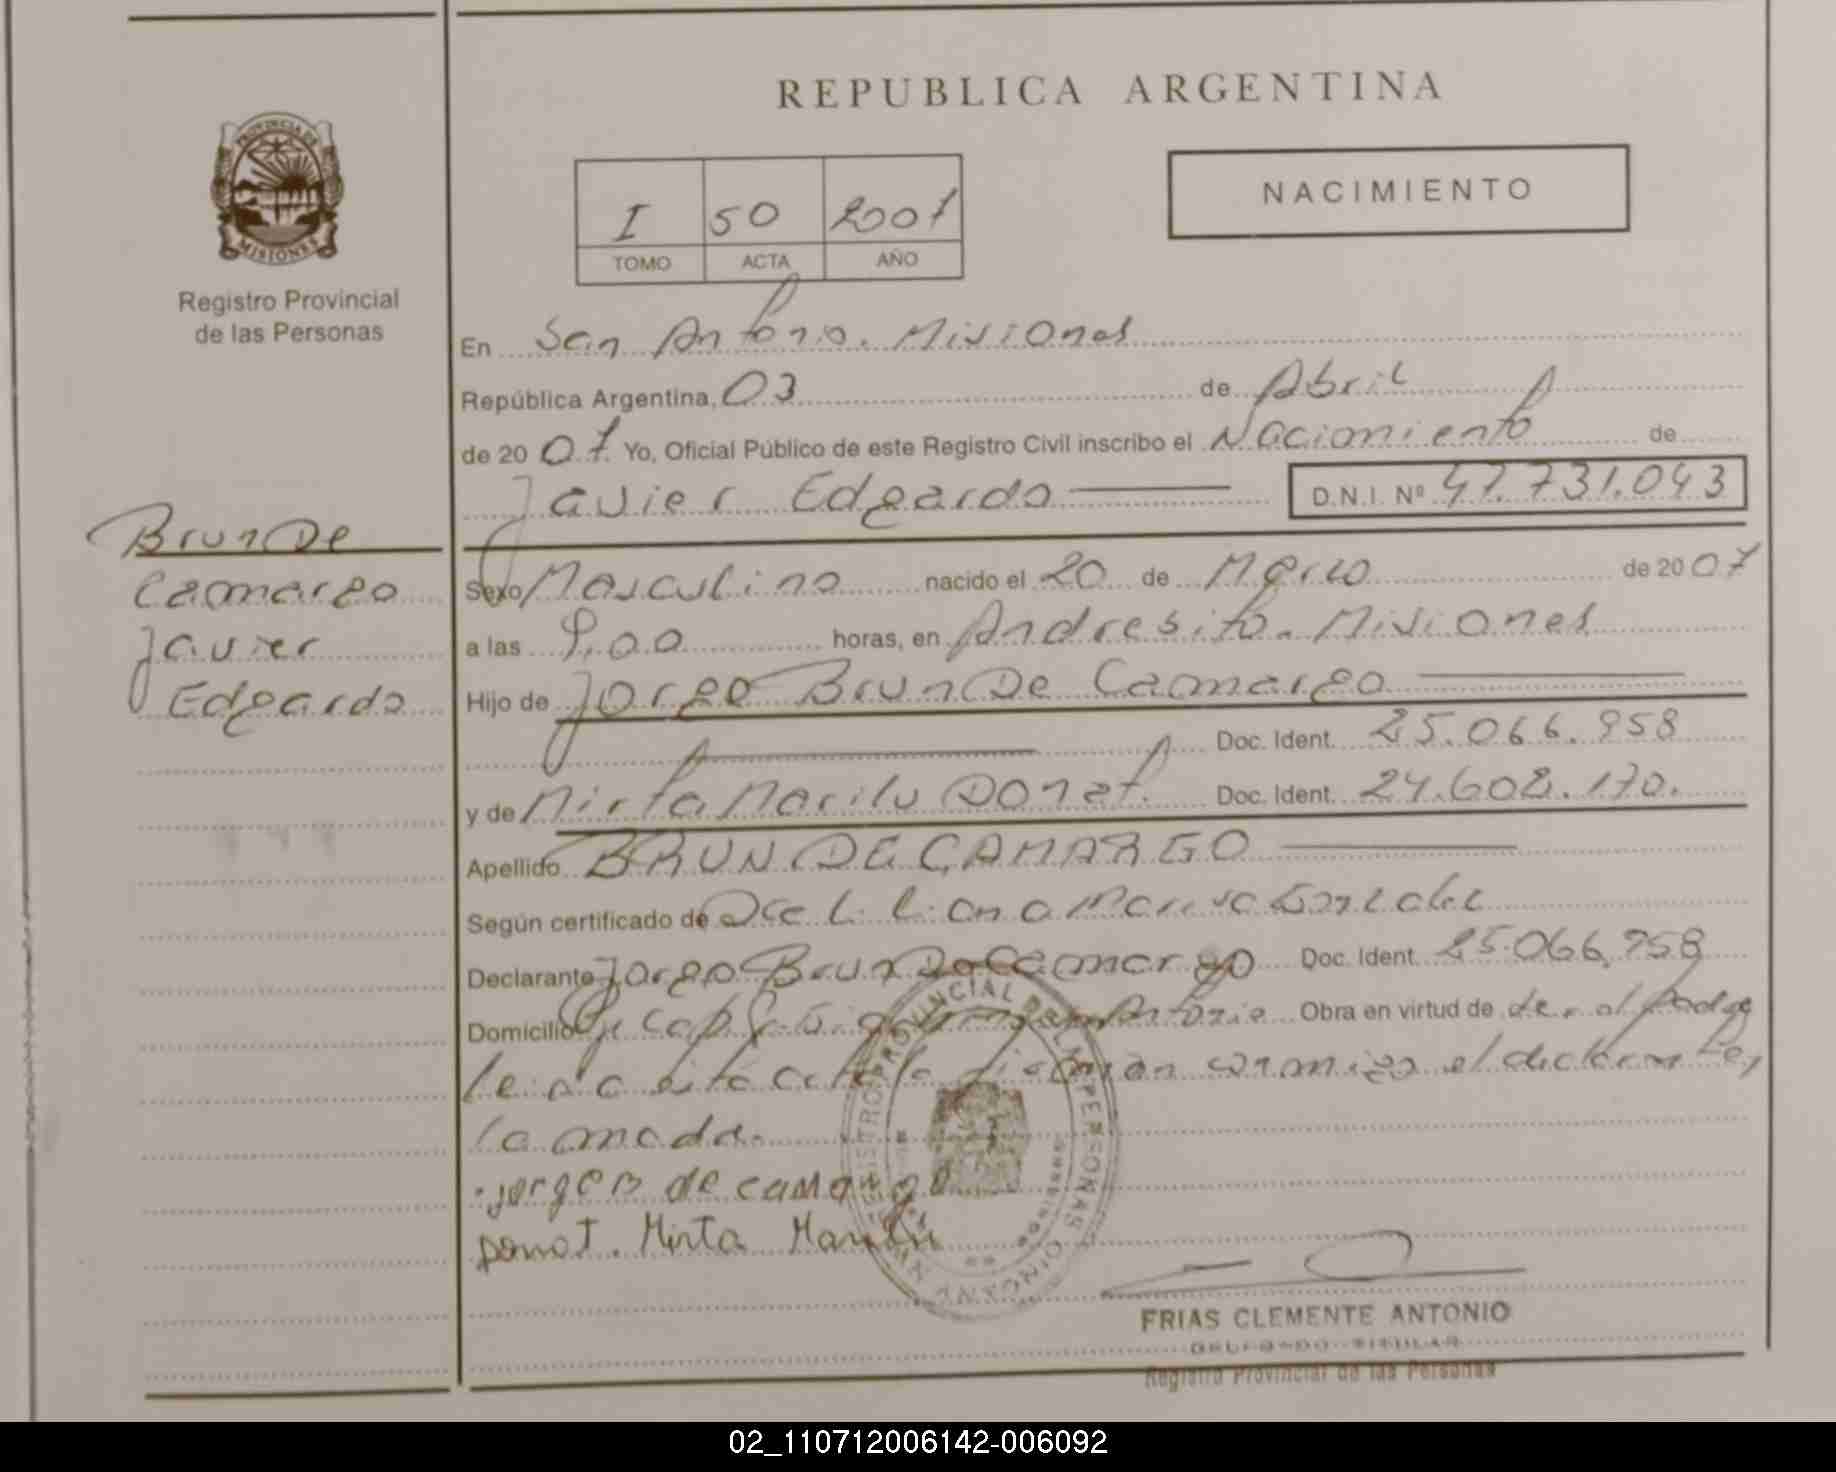 REPUBLICA ARGENTINA
PROVINCIA DE
MISIONES
Registro Provincial
de las Personas
NACIMIENTO
I 50 2007
TOMO ACTA AÑO
En San Antonio. Misiones
República Argentina, 03 de Abril
de 20 07 Yo, Oficial Público de este Registro Civil inscribo el Nacimiento de
Javier Edgardo D.N.I. Nº 47.731.043
Brun De
Camargo
Javier
Edgardo
Sexo Masculino nacido el 20 de Marzo de 20 07
a las 9,00 horas, en Andresito. Misiones
Hijo de Jorge Brun De Camargo
Doc. Ident. 25.066.958
y de Mirta Marilu Donat. Doc. Ident. 24.602.170.
Apellido BRUN DE CAMARGO
Según certificado de Liliana
Declarante Jorge Brun De Camargo Doc. Ident. 25.066.958
Domicilio Obra en virtud de
el declarante,
la madre.
jorge B de camargo
Donat. Mirta Marilú
REGISTRO PROVINCIAL DE LAS PERSONAS
FRIAS CLEMENTE ANTONIO
DELEGADO TITULAR
Registro Provincial de las Personas
02_110712006142-006092